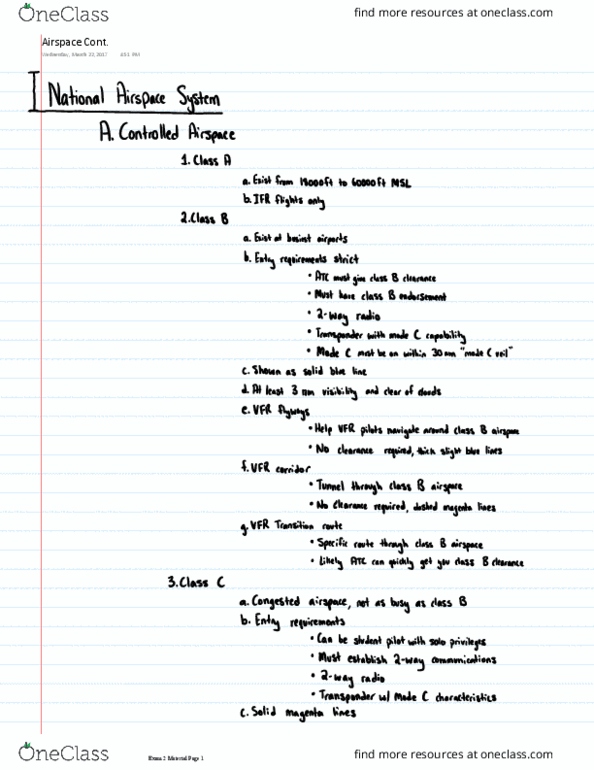 OneClass
find more resources at oneclass.com
Airspace Cont.
Wednesday, March 22, 2017
I National Airspace System
A. Controlled Airspace
1. Class A
a. Exist from 18000ft to 60000ft MSL
b. IFR flights only
2. Class B
a. Exist at busiest airports
b. Entry requirements strict
• ATC must give class B clearance
• Must have class B endorsement
• 2-way radio
• Transponder with mode C capability
• Mode C must be on within 30 nm "mode C veil"
c. Shown as solid blue line
d. At least 3 nm visibility and clear of clouds
e. VFR flyways
• Help VFR pilots navigate around class B airspace
• No clearance required, thick slight blue lines
f. VFR corridor
• Tunnel through class B airspace
• No clearance required, dashed magenta lines
g. VFR Transition route
• Specific route through class B airspace
• Likely ATC can quickly get you class B clearance
3. Class C
a. Congested airspace, not as busy as class B
b. Entry requirements
• Can be student pilot with solo privileges
• Must establish 2-way communications
• 2-way radio
• Transponder w/ Mode C characteristics
c. Solid magenta lines
OneClass
Exam 2 Material Page 1
find more resources at oneclass.com